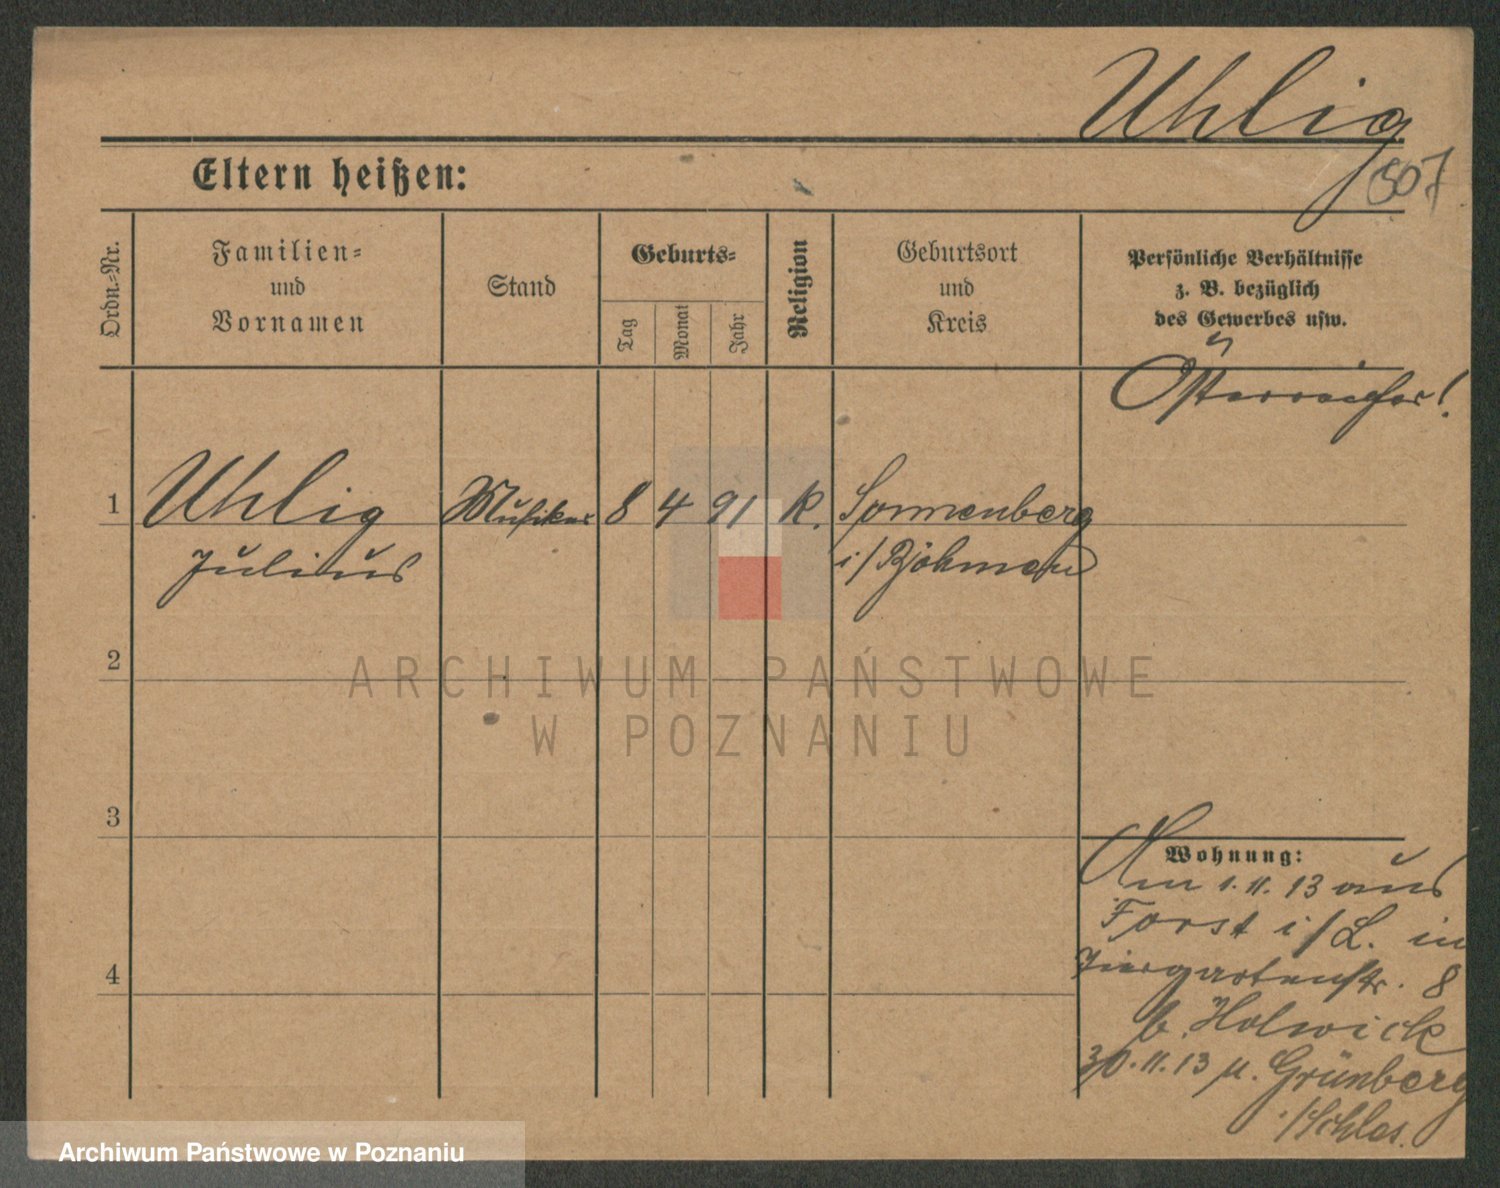 Uhlig
507
Eltern heißen:
Ordn.-Nr.
Familien-
und
Vornamen
Stand
Geburts-
Tag
Monat
Jahr
Religion
Geburtsort
und
Kreis
Persönliche Verhältnisse
z. B. bezüglich
des Gewerbes usw.
Österreicher!
1
Uhlig
Julius
Musiker
8
4
91
k.
Sonnenberg
i/Böhmen
2
ARCHIWUM PAŃSTWOWE
W POZNANIU
3
Wohnung:
Am 1.11.13 aus
Forst i/L. in
Tiergartenstr. 8
b. Holwick
30.11.13 n. Grünberg
i/Schles.
4
Archiwum Państwowe w Poznaniu